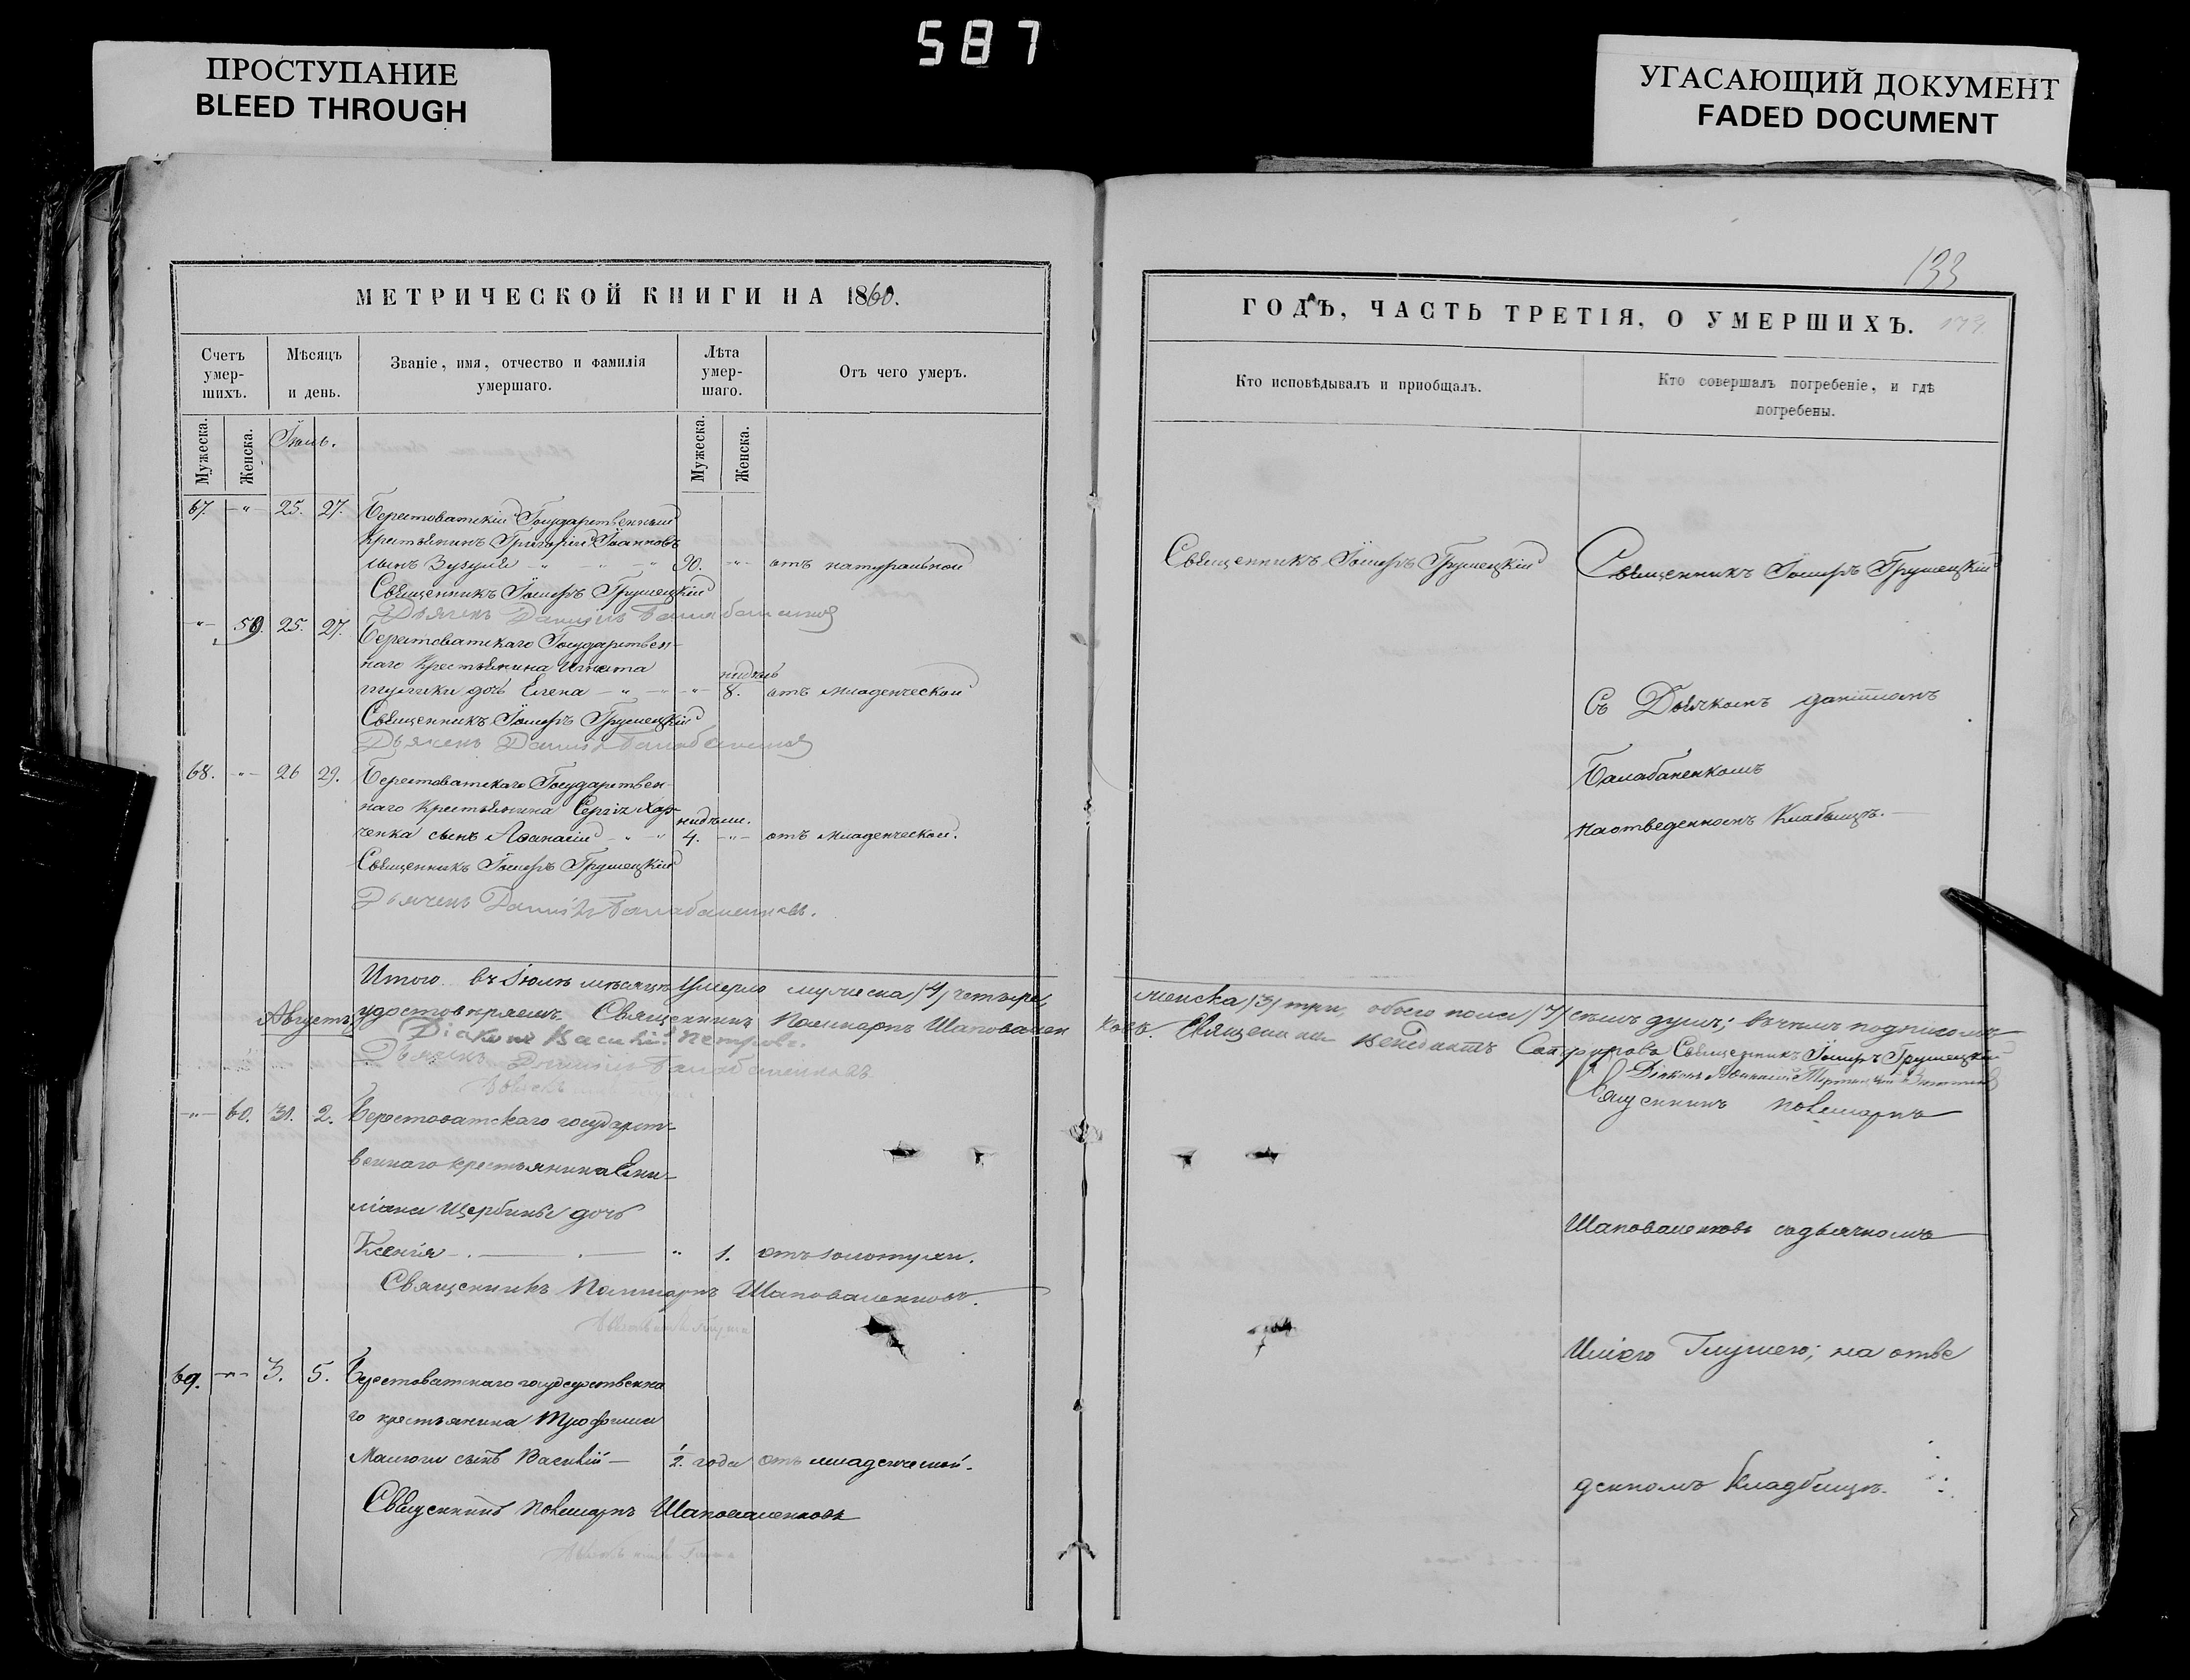 587
ПРОСТУПАНИЕ
BLEED THROUGH
УГАСАЮЩИЙ ДОКУМЕНТ
FADED DOCUMENT
МЕТРИЧЕСКОЙ КНИГИ НА 1860.
Счетъ умер-шихъ.
Мѣсяцъ и день.
Званіе, имя, отчество и фамилія умершаго.
Лѣта умер-шаго.
Отъ чего умеръ.
Мужеска.
Женска.
Іюль.
Мужеска.
Женска.
67. -"- 25. 27. Берестоватскій Государственный
крестьянинъ Григорій Іоанновъ
сынъ Зузуля - " - " - " 90. -"- отъ натуральной
Священникъ Іосифъ Грушецкій
Дьячекъ Даніилъ Балабаненко
-"- 59. 25. 27. Берестоватскаго Государствен-
наго Крестьянина Игната
дочь Елена - " - " - недѣль 8. отъ младенческой
Священникъ Іосифъ Грушецкій
Дьячекъ Даніилъ Балабаненко
68. -"- 26 29. Берестоватскаго Государствен-
наго Крестьянина Сергія Хар-
ченка сынъ Аѳанасій - " - " недѣли. 4. -"- отъ младенческой.
Священникъ Іосифъ Грушецкій
Дьячекъ Даніилъ Балабаненковъ.
Итого въ Іюлѣ мѣсяцѣ умерло мужеска /4/ четыре,
Августъ удостовѣряемъ Священникъ Поликарпъ Шаповален
Діаконъ Василій Петровъ.
Дьячекъ Даніилъ Балабаненковъ
-"- 60. 31. 2. Берестоватскаго государст-
веннаго крестьянина Еми-
ліана Щербины дочь
Ксенія - . - . - " 1. отъ золотухи.
Священникъ Поликарпъ Шаповаленковъ.
69. -"- 3. 5. Берестоватскаго государственна
го крестьянина Трофима
Малюги сынъ Василій - 1/2. года отъ младенческой.
Священникъ Поликарпъ Шаповаленковъ
133
ГОДЪ, ЧАСТЬ ТРЕТІЯ, О УМЕРШИХЪ. 173
Кто исповѣдывалъ и пріобщалъ.
Кто совершалъ погребеніе, и гдѣ погребены.
Священникъ Іосифъ Грушецкій
Священникъ Іосифъ Грушецкій
Съ Дьячкомъ Даніиломъ
Балабаненкомъ
на отведенномъ Кладбищѣ.
женска /3/ три, обоего пола /7/ семь душъ; въ чемъ подписомъ
ковъ. Священникъ Венедиктъ Священникъ Іосифъ Грушецкій
Діаконъ Аѳанасій
Священникъ Поликарпъ
Шаповаленковъ съ дьячкомъ
Иліею Глушею; на отве
денномъ Кладбищѣ.